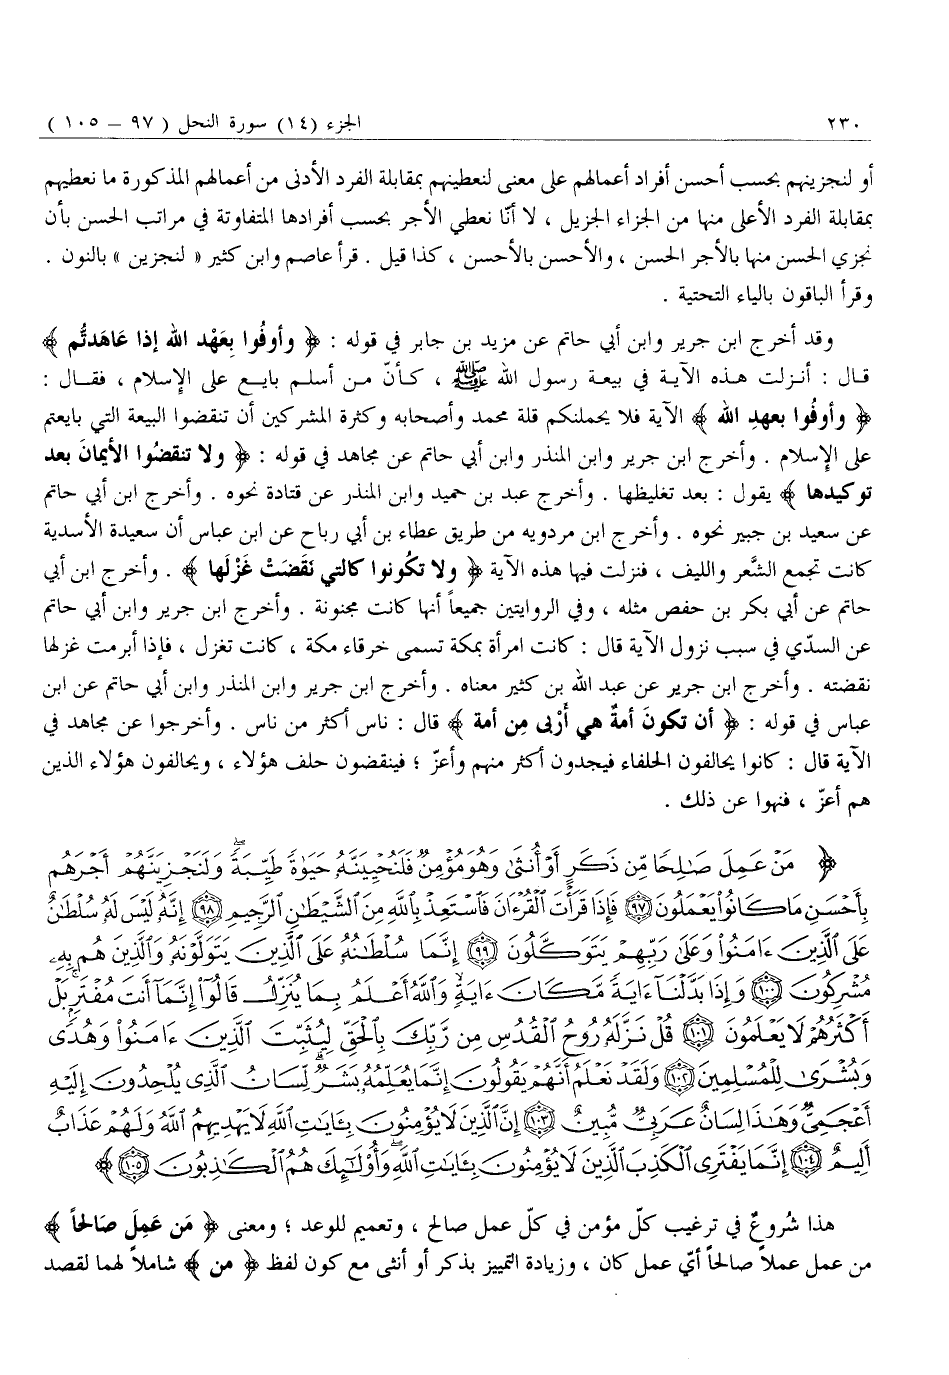 ٢٣٠ الجزء (١٤) سورة النحل ( ٩٧ – ١٠٥ )
أو لنجزينهم بحسب أحسن أفراد أعمالهم على معنى لنعطينهم بمقابلة الفرد الأدنى من أعمالهم المذكورة ما نعطيهم
بمقابلة الفرد الأعلى منها من الجزاء الجزيل ، لا أنّا نعطي الأجر بحسب أفرادها المتفاوتة في مراتب الحسن بأن
نجزي الحسن منها بالأجر الحسن ، والأحسن بالأحسن ، كذا قيل . قرأ عاصم وابن كثير « لنجزين » بالنون .
وقرأ الباقون بالياء التحتية .
وقد أخرج ابن جرير وابن أبي حاتم عن مزيد بن جابر في قوله : ﴿ وأوفُوا بِعَهْد الله إذا عَاهَدتُّم ﴾
قال : أنزلت هذه الآية في بيعة رسول الله ﷺ ، كأنّ من أسلم بايع على الإسلام ، فقال :
﴿ وأوفُوا بعهدِ الله ﴾ الآية فلا يحملنكم قلة محمد وأصحابه وكثرة المشركين أن تنقضوا البيعة التي بايعتم
على الإسلام . وأخرج ابن جرير وابن المنذر وابن أبي حاتم عن مجاهد في قوله : ﴿ ولا تنقضُوا الأيمانَ بعد
توكيدها ﴾ يقول : بعد تغليظها . وأخرج عبد بن حميد وابن المنذر عن قتادة نحوه . وأخرج ابن أبي حاتم
عن سعيد بن جبير نحوه . وأخرج ابن مردويه من طريق عطاء بن أبي رباح عن ابن عباس أن سعيدة الأسدية
كانت تجمع الشَّعر والليف ، فنزلت فيها هذه الآية ﴿ ولا تكُونوا كالتي نَقَضَتْ غَزْلَها ﴾ . وأخرج ابن أبي
حاتم عن أبي بكر بن حفص مثله ، وفي الروايتين جميعاً أنها كانت مجنونة . وأخرج ابن جرير وابن أبي حاتم
عن السدّي في سبب نزول الآية قال : كانت امرأة بمكة تسمى خرقاء مكة ، كانت تغزل ، فإذا أبرمت غزلها
نقضته . وأخرج ابن جرير عن عبد الله بن كثير معناه . وأخرج ابن جرير وابن المنذر وابن أبي حاتم عن ابن
عباس في قوله : ﴿ أن تكونَ أمةٌ هي أَرْبى مِن أمة ﴾ قال : ناس أكثر من ناس . وأخرجوا عن مجاهد في
الآية قال : كانوا يحالفون الحلفاء فيجدون أكثر منهم وأعزّ ؛ فينقضون حلف هؤلاء ، ويحالفون هؤلاء الذين
هم أعزّ ، فنهوا عن ذلك .
﴿ مَنْ عَمِلَ صَٰلِحًا مِّن ذَكَرٍ أَوْ أُنثَىٰ وَهُوَ مُؤْمِنٌ فَلَنُحْيِيَنَّهُۥ حَيَوٰةً طَيِّبَةً ۖ وَلَنَجْزِيَنَّهُمْ أَجْرَهُم
بِأَحْسَنِ مَا كَانُوا۟ يَعْمَلُونَ ٩٧ فَإِذَا قَرَأْتَ ٱلْقُرْءَانَ فَٱسْتَعِذْ بِٱللَّهِ مِنَ ٱلشَّيْطَٰنِ ٱلرَّجِيمِ ٩٨ إِنَّهُۥ لَيْسَ لَهُۥ سُلْطَٰنٌ
عَلَى ٱلَّذِينَ ءَامَنُوا۟ وَعَلَىٰ رَبِّهِمْ يَتَوَكَّلُونَ ٩٩ إِنَّمَا سُلْطَٰنُهُۥ عَلَى ٱلَّذِينَ يَتَوَلَّوْنَهُۥ وَٱلَّذِينَ هُم بِهِۦ
مُشْرِكُونَ ١٠٠ وَإِذَا بَدَّلْنَآ ءَايَةً مَّكَانَ ءَايَةٍ ۙ وَٱللَّهُ أَعْلَمُ بِمَا يُنَزِّلُ قَالُوٓا۟ إِنَّمَآ أَنتَ مُفْتَرٍۭ ۚ بَلْ
أَكْثَرُهُمْ لَا يَعْلَمُونَ ١٠١ قُلْ نَزَّلَهُۥ رُوحُ ٱلْقُدُسِ مِن رَّبِّكَ بِٱلْحَقِّ لِيُثَبِّتَ ٱلَّذِينَ ءَامَنُوا۟ وَهُدًى
وَبُشْرَىٰ لِلْمُسْلِمِينَ ١٠٢ وَلَقَدْ نَعْلَمُ أَنَّهُمْ يَقُولُونَ إِنَّمَا يُعَلِّمُهُۥ بَشَرٌ ۗ لِّسَانُ ٱلَّذِى يُلْحِدُونَ إِلَيْهِ
أَعْجَمِىٌّ وَهَٰذَا لِسَانٌ عَرَبِىٌّ مُّبِينٌ ١٠٣ إِنَّ ٱلَّذِينَ لَا يُؤْمِنُونَ بِـَٔايَٰتِ ٱللَّهِ لَا يَهْدِيهِمُ ٱللَّهُ وَلَهُمْ عَذَابٌ
أَلِيمٌ ١٠٤ إِنَّمَا يَفْتَرِى ٱلْكَذِبَ ٱلَّذِينَ لَا يُؤْمِنُونَ بِـَٔايَٰتِ ٱللَّهِ ۖ وَأُو۟لَٰٓئِكَ هُمُ ٱلْكَٰذِبُونَ ١٠٥ ﴾
هذا شُروعٌ في ترغيب كلّ مؤمن في كلّ عمل صالح ، وتعميم للوعد ؛ ومعنى ﴿ مَن عَمِلَ صَالحاً ﴾
من عمل عملاً صالحاً أيّ عمل كان ، وزيادة التمييز بذكر أو أنثى مع كون لفظ ﴿ من ﴾ شاملاً لهما لقصد